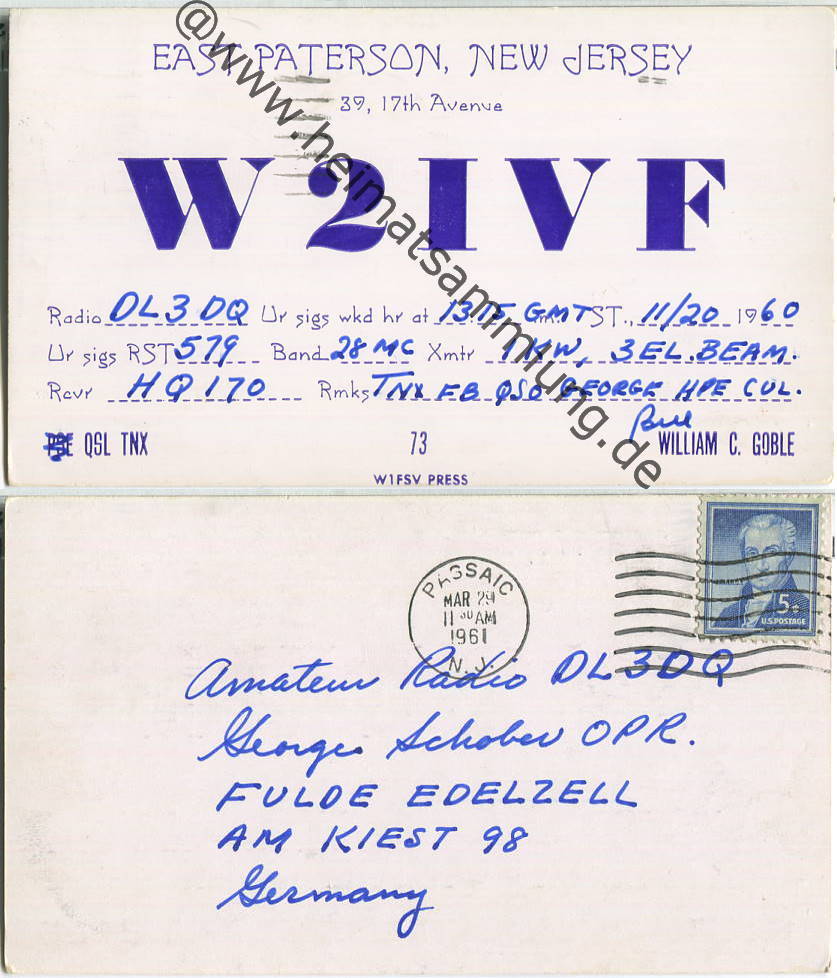 @www.heimatsammlung.de
EAST PATERSON, NEW JERSEY
39, 17th Avenue
W2IVF
Radio DL3DQ Ur sigs wkd hr at 1315 GMT ST., 11/20 1960
Ur sigs RST 579 Band 28 MC Xmtr 1KW, 3EL. BEAM.
Rcvr HQ 170 Rmks TNX FB QSO GEORGE HPE CUL.
Bill
PSE QSL TNX 73 WILLIAM C. GOBLE
W1FSV PRESS
PASSAIC
MAR 29
11 30 AM
1961
N.J.
5c
U.S. POSTAGE
Amateur Radio DL3DQ
George Schober OPR.
FULDE EDELZELL
AM KIEST 98
Germany